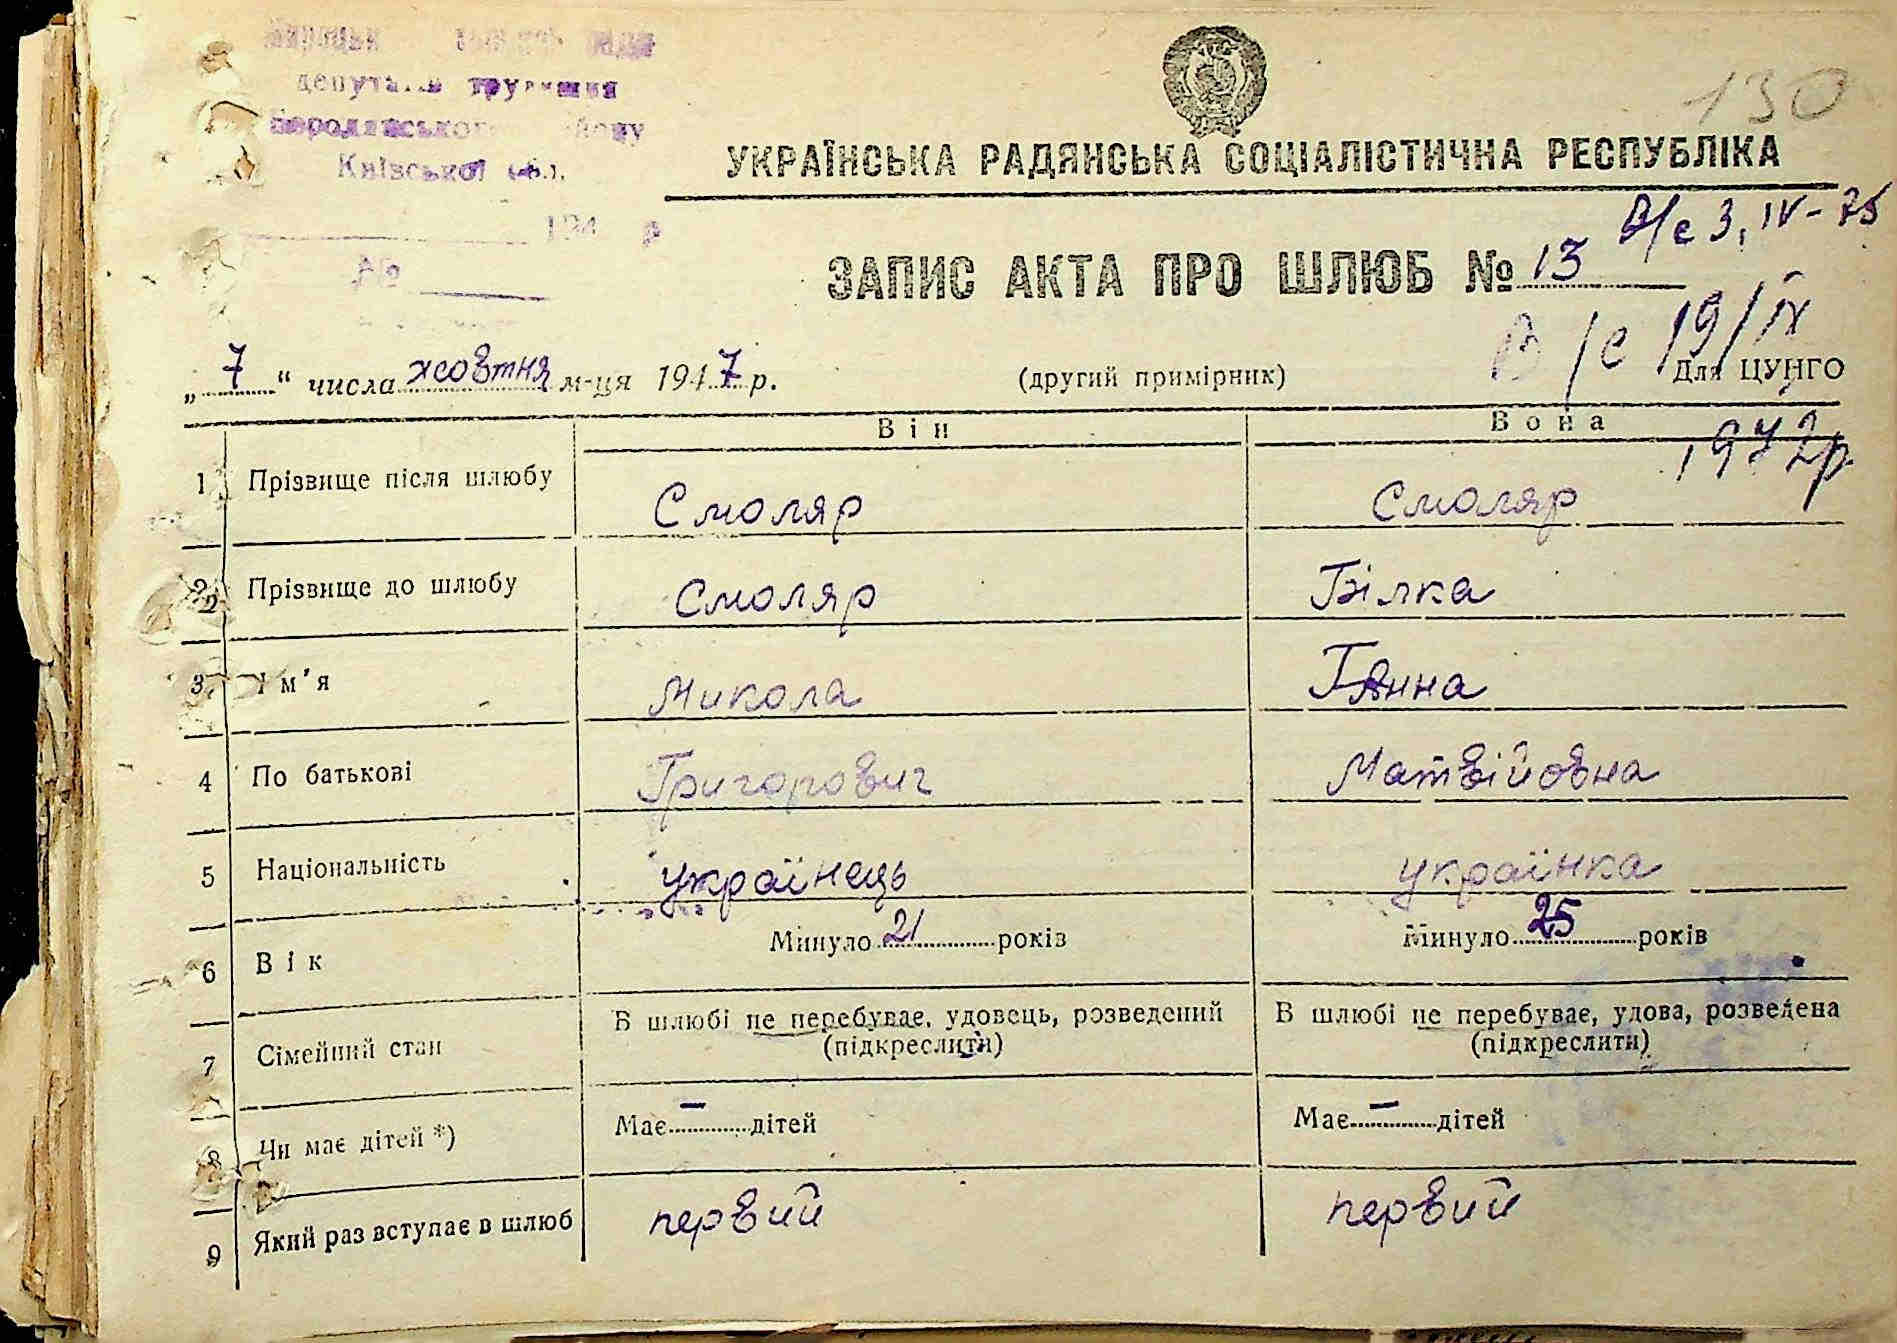 депутатів трудящих
Бородянського району
Київської обл.
194 р
№
130
УКРАЇНСЬКА РАДЯНСЬКА СОЦІАЛІСТИЧНА РЕСПУБЛІКА
В/с 3, IV-75
ЗАПИС АКТА ПРО ШЛЮБ № 13
В/с 19/IX
1972р
„ 7 “ числа жовтня м-ця 1947 р.
(другий примірник)
Для ЦУНГО
Він
Вона
1 Прізвище після шлюбу Смоляр Смоляр
2 Прізвище до шлюбу Смоляр Білка
3 Ім'я Микола Ганна
4 По батькові Григорович Матвійовна
5 Національність українець українка
6 Вік Минуло 21 років Минуло 25 років
7 Сімейний стан В шлюбі не перебуває, удовець, розведений В шлюбі не перебуває, удова, розведена
(підкреслити) (підкреслити)
8 Чи має дітей *) Має – дітей Має – дітей
9 Який раз вступає в шлюб первий первий